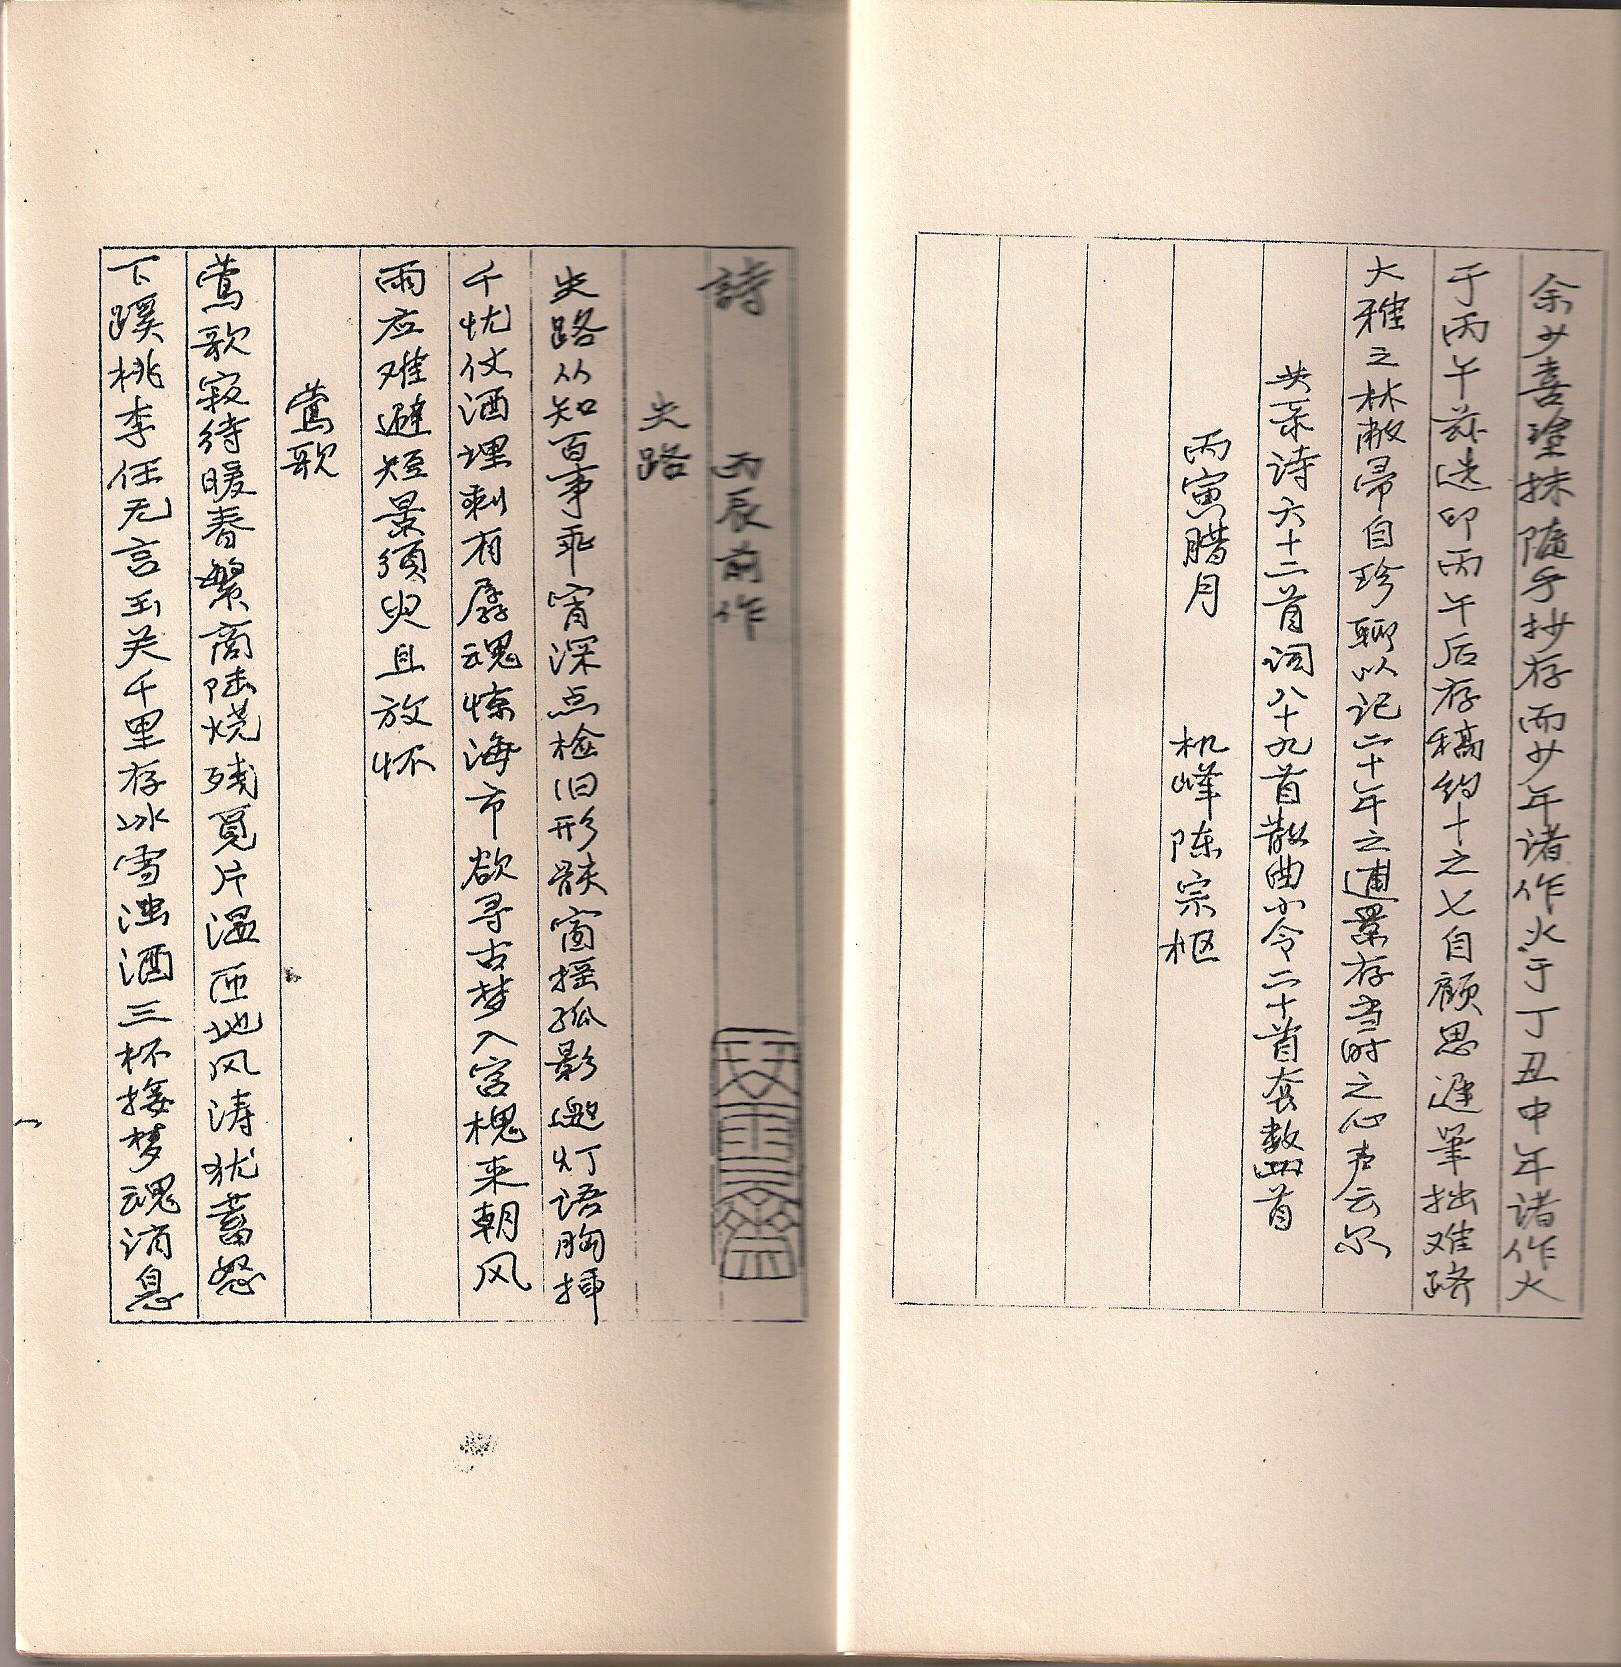 余少喜塗抹随手抄存而少年诸作火于丁丑中年诸作火
于丙午兹选印丙午后存稿约十之七自顾思遲筆拙难跻
大雅之林敝帚自珍聊以记二十年之通景存当时之心声云尔
共录诗六十二首词八十九首散曲小令二十首套数四首
丙寅腊月 机峰陈宗枢
詩 丙辰前作
失路
失路从知百事乖宵深点检旧形骸窗摇孤影邀灯语胸插
千忧仗酒埋刺有孱魂惊海市欲寻古梦入宫槐来朝风
雨应难避短景须臾且放怀
莺歌
莺歌寂待暖春繁商陆烧残觅片温匝地风涛犹蓄怒
下蹊桃李任无言玉关千里存冰雪浊酒三杯接梦魂消息